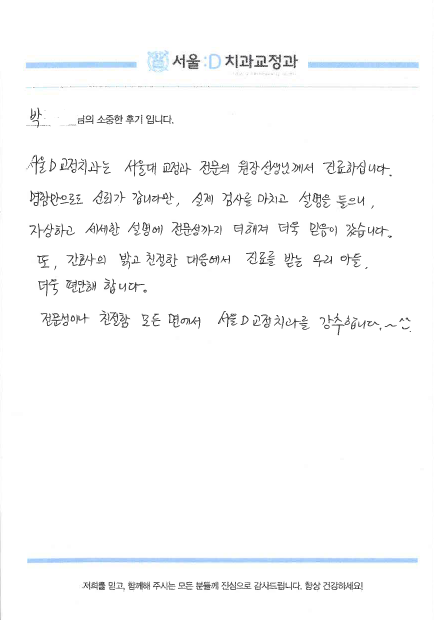 서울:D 치과교정과
박 님의 소중한 후기 입니다.
서울D교정치과는 서울대 교정과 전문의 원장선생님께서 진료하십니다.
명함만으로도 신뢰가 갑니다만, 실제 검사를 마치고 설명을 들으니,
자상하고 세세한 설명에 전문성까지 더해져 더욱 믿음이 갔습니다.
또, 간호사의 밝고 친절한 대응에서 진료를 받는 우리 아들,
더욱 편안해 합니다.
전문성이나 친절함 모든 면에서 서울D교정치과를 강추합니다.~^^
저희를 믿고, 함께해 주시는 모든 분들께 진심으로 감사드립니다. 항상 건강하세요!